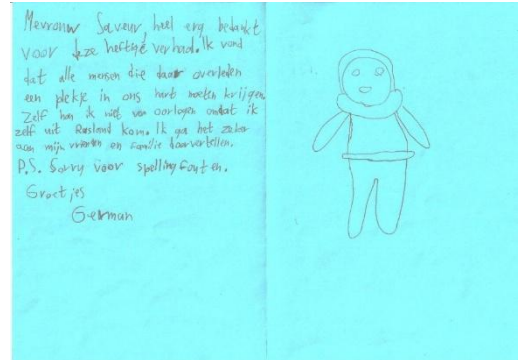 Mevrouw Saveur, heel erg bedankt
voor deze heftige verhaal. Ik vond
dat alle mensen die daar overleden
een plekje in ons hart moeten krijgen.
Zelf hou ik niet van oorlogen omdat ik
zelf uit Rusland kom. Ik ga het zeker
aan mijn vrienden en familie doorvertellen.
P.S. Sorry voor spellingfouten.
Groetjes
German